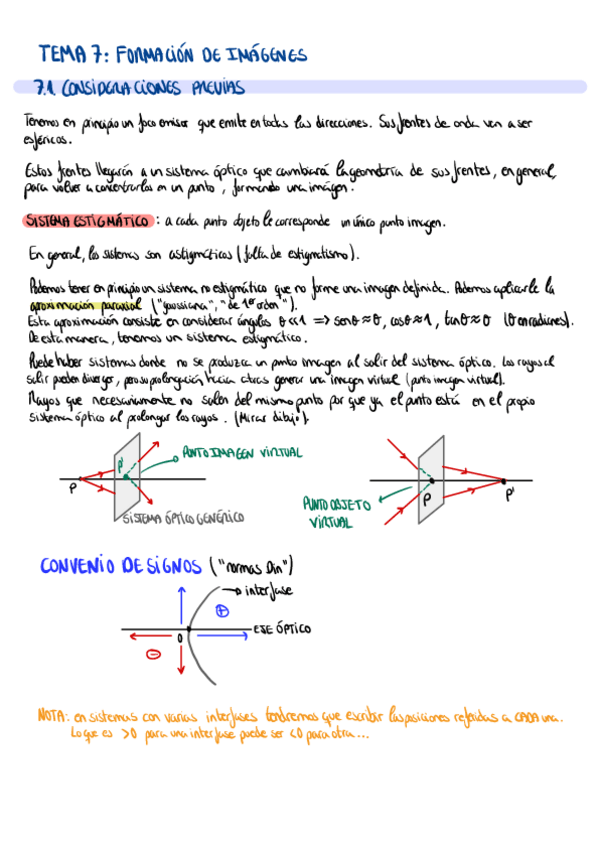 TEMA 7: FORMACIÓN DE IMÁGENES
7.1. CONSIDERACIONES PREVIAS
Tenemos en principio un foco emisor que emite en todas las direcciones. Sus frentes de onda van a ser
esféricos.
Estos frentes llegarán a un sistema óptico que cambiará la geometría de sus frentes, en general,
para volver a concentrarlos en un punto, formando una imagen.
SISTEMA ESTIGMÁTICO: a cada punto objeto le corresponde un único punto imagen.
En general, los sistemas son astigmáticos (falta de estigmatismo).
Podemos tener en principio un sistema no estigmático que no forme una imagen definida. Podemos aplicarle la
aproximación paraxial ("gaussiana", "de 1er orden").
Esta aproximación consiste en considerar ángulos θ<<1 => senθ≈θ, cosθ≈1, tanθ≈θ (θ en radianes).
De esta manera, tenemos un sistema estigmático.
Puede haber sistemas donde no se produzca un punto imagen al salir del sistema óptico. Los rayos al
salir pueden divergir, pero su prolongación hacia atrás generar una imagen virtual (punto imagen virtual).
Rayos que necesariamente no salen del mismo punto por que ya el punto está en el propio
sistema óptico al prolongar los rayos. (Mirar dibujo).
P
P'
PUNTO IMAGEN VIRTUAL
SISTEMA ÓPTICO GENÉRICO
PUNTO OBJETO
VIRTUAL
P
P'
CONVENIO DE SIGNOS ("normas Din")
interfase
+
EJE ÓPTICO
O
-
NOTA: en sistemas con varias interfases tendremos que escribir las posiciones referidas a CADA una.
Lo que es >0 para una interfase puede ser <0 para otra...